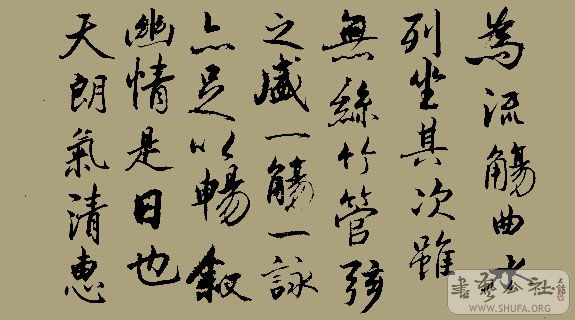 為流觴曲水
列坐其次雖
無絲竹管弦
之盛一觴一詠
亦足以暢叙
幽情是日也
天朗氣清惠
書藝公社
WWW.SHUFA.ORG